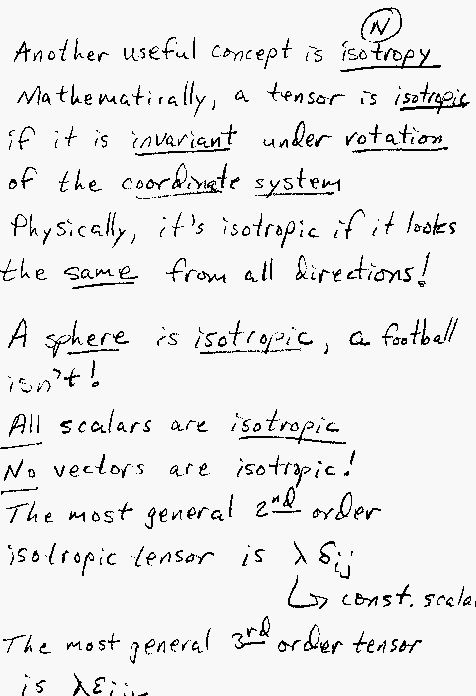 N
Another useful concept is isotropy
Mathematically, a tensor is isotropic
if it is invariant under rotation
of the coordinate system
Physically, it's isotropic if it looks
the same from all directions!
A sphere is isotropic, a football
isn't!
All scalars are isotropic
No vectors are isotropic!
The most general 2nd order
isotropic tensor is λ δij
↳ const. scalar
The most general 3rd order tensor
is λ